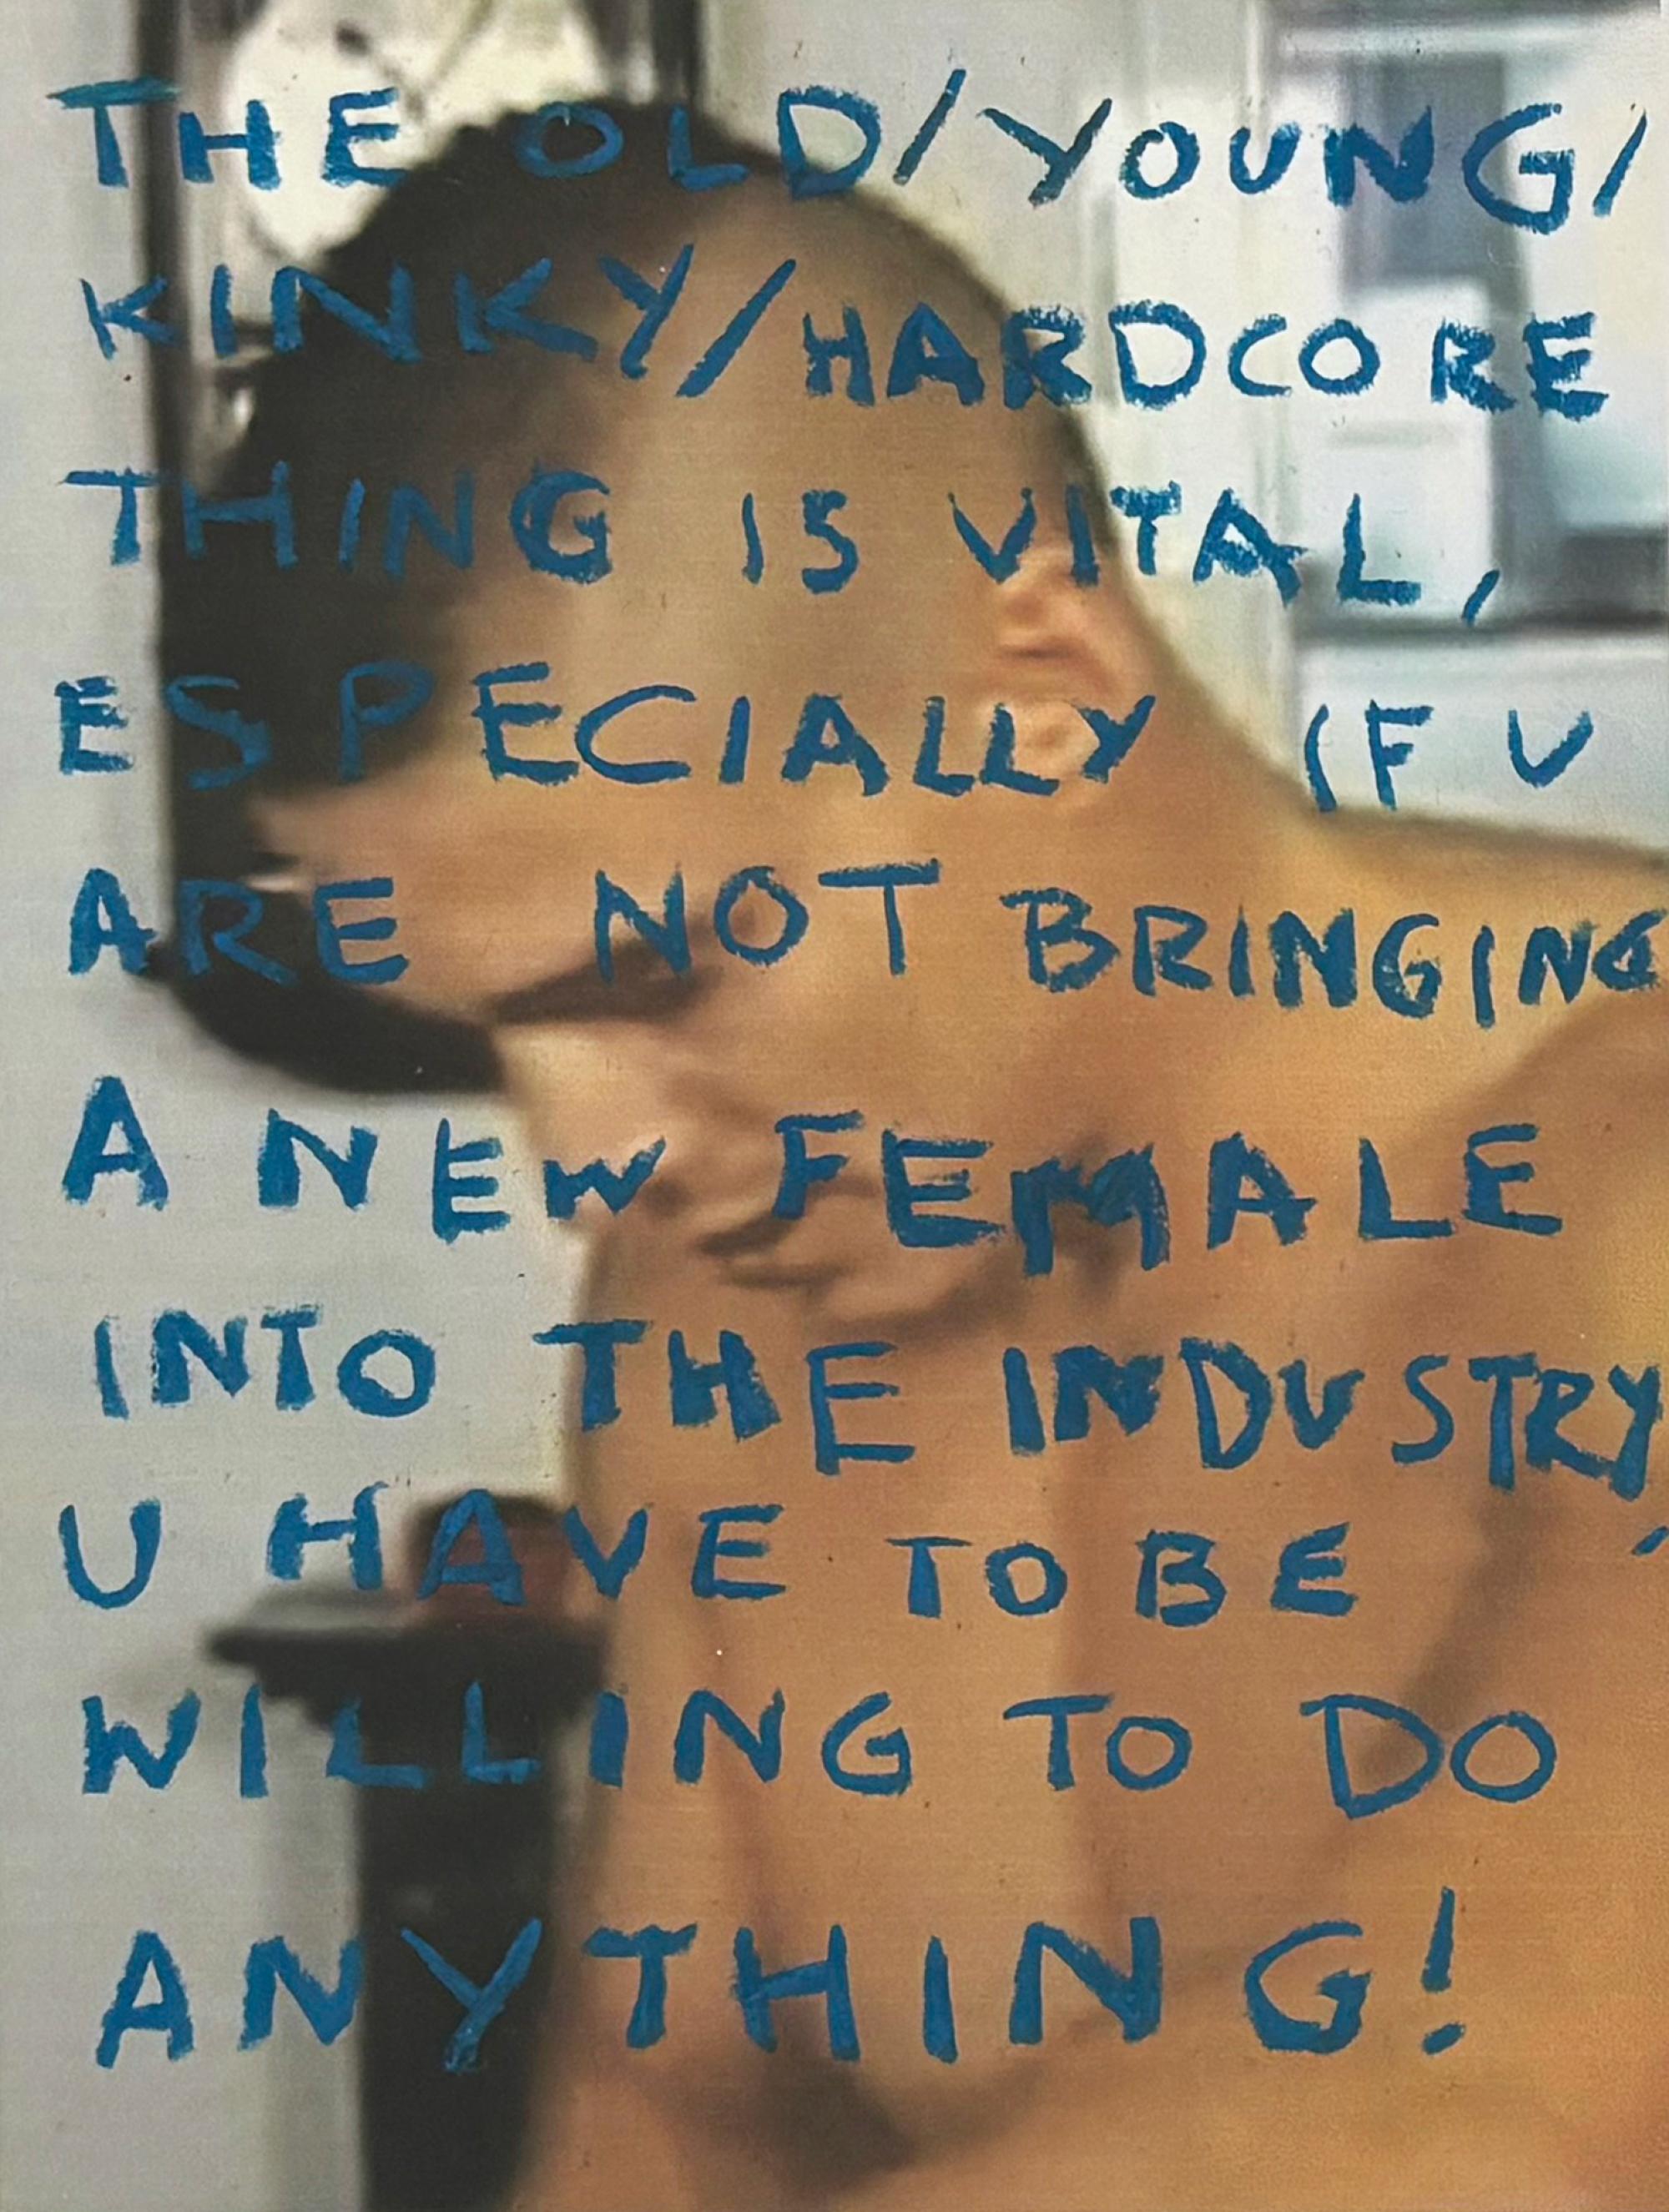 THE OLD/YOUNG/
KINKY/HARDCORE
THING IS VITAL,
ESPECIALLY IF U
ARE NOT BRINGING
A NEW FEMALE
INTO THE INDUSTRY,
U HAVE TO BE
WILLING TO DO
ANYTHING!